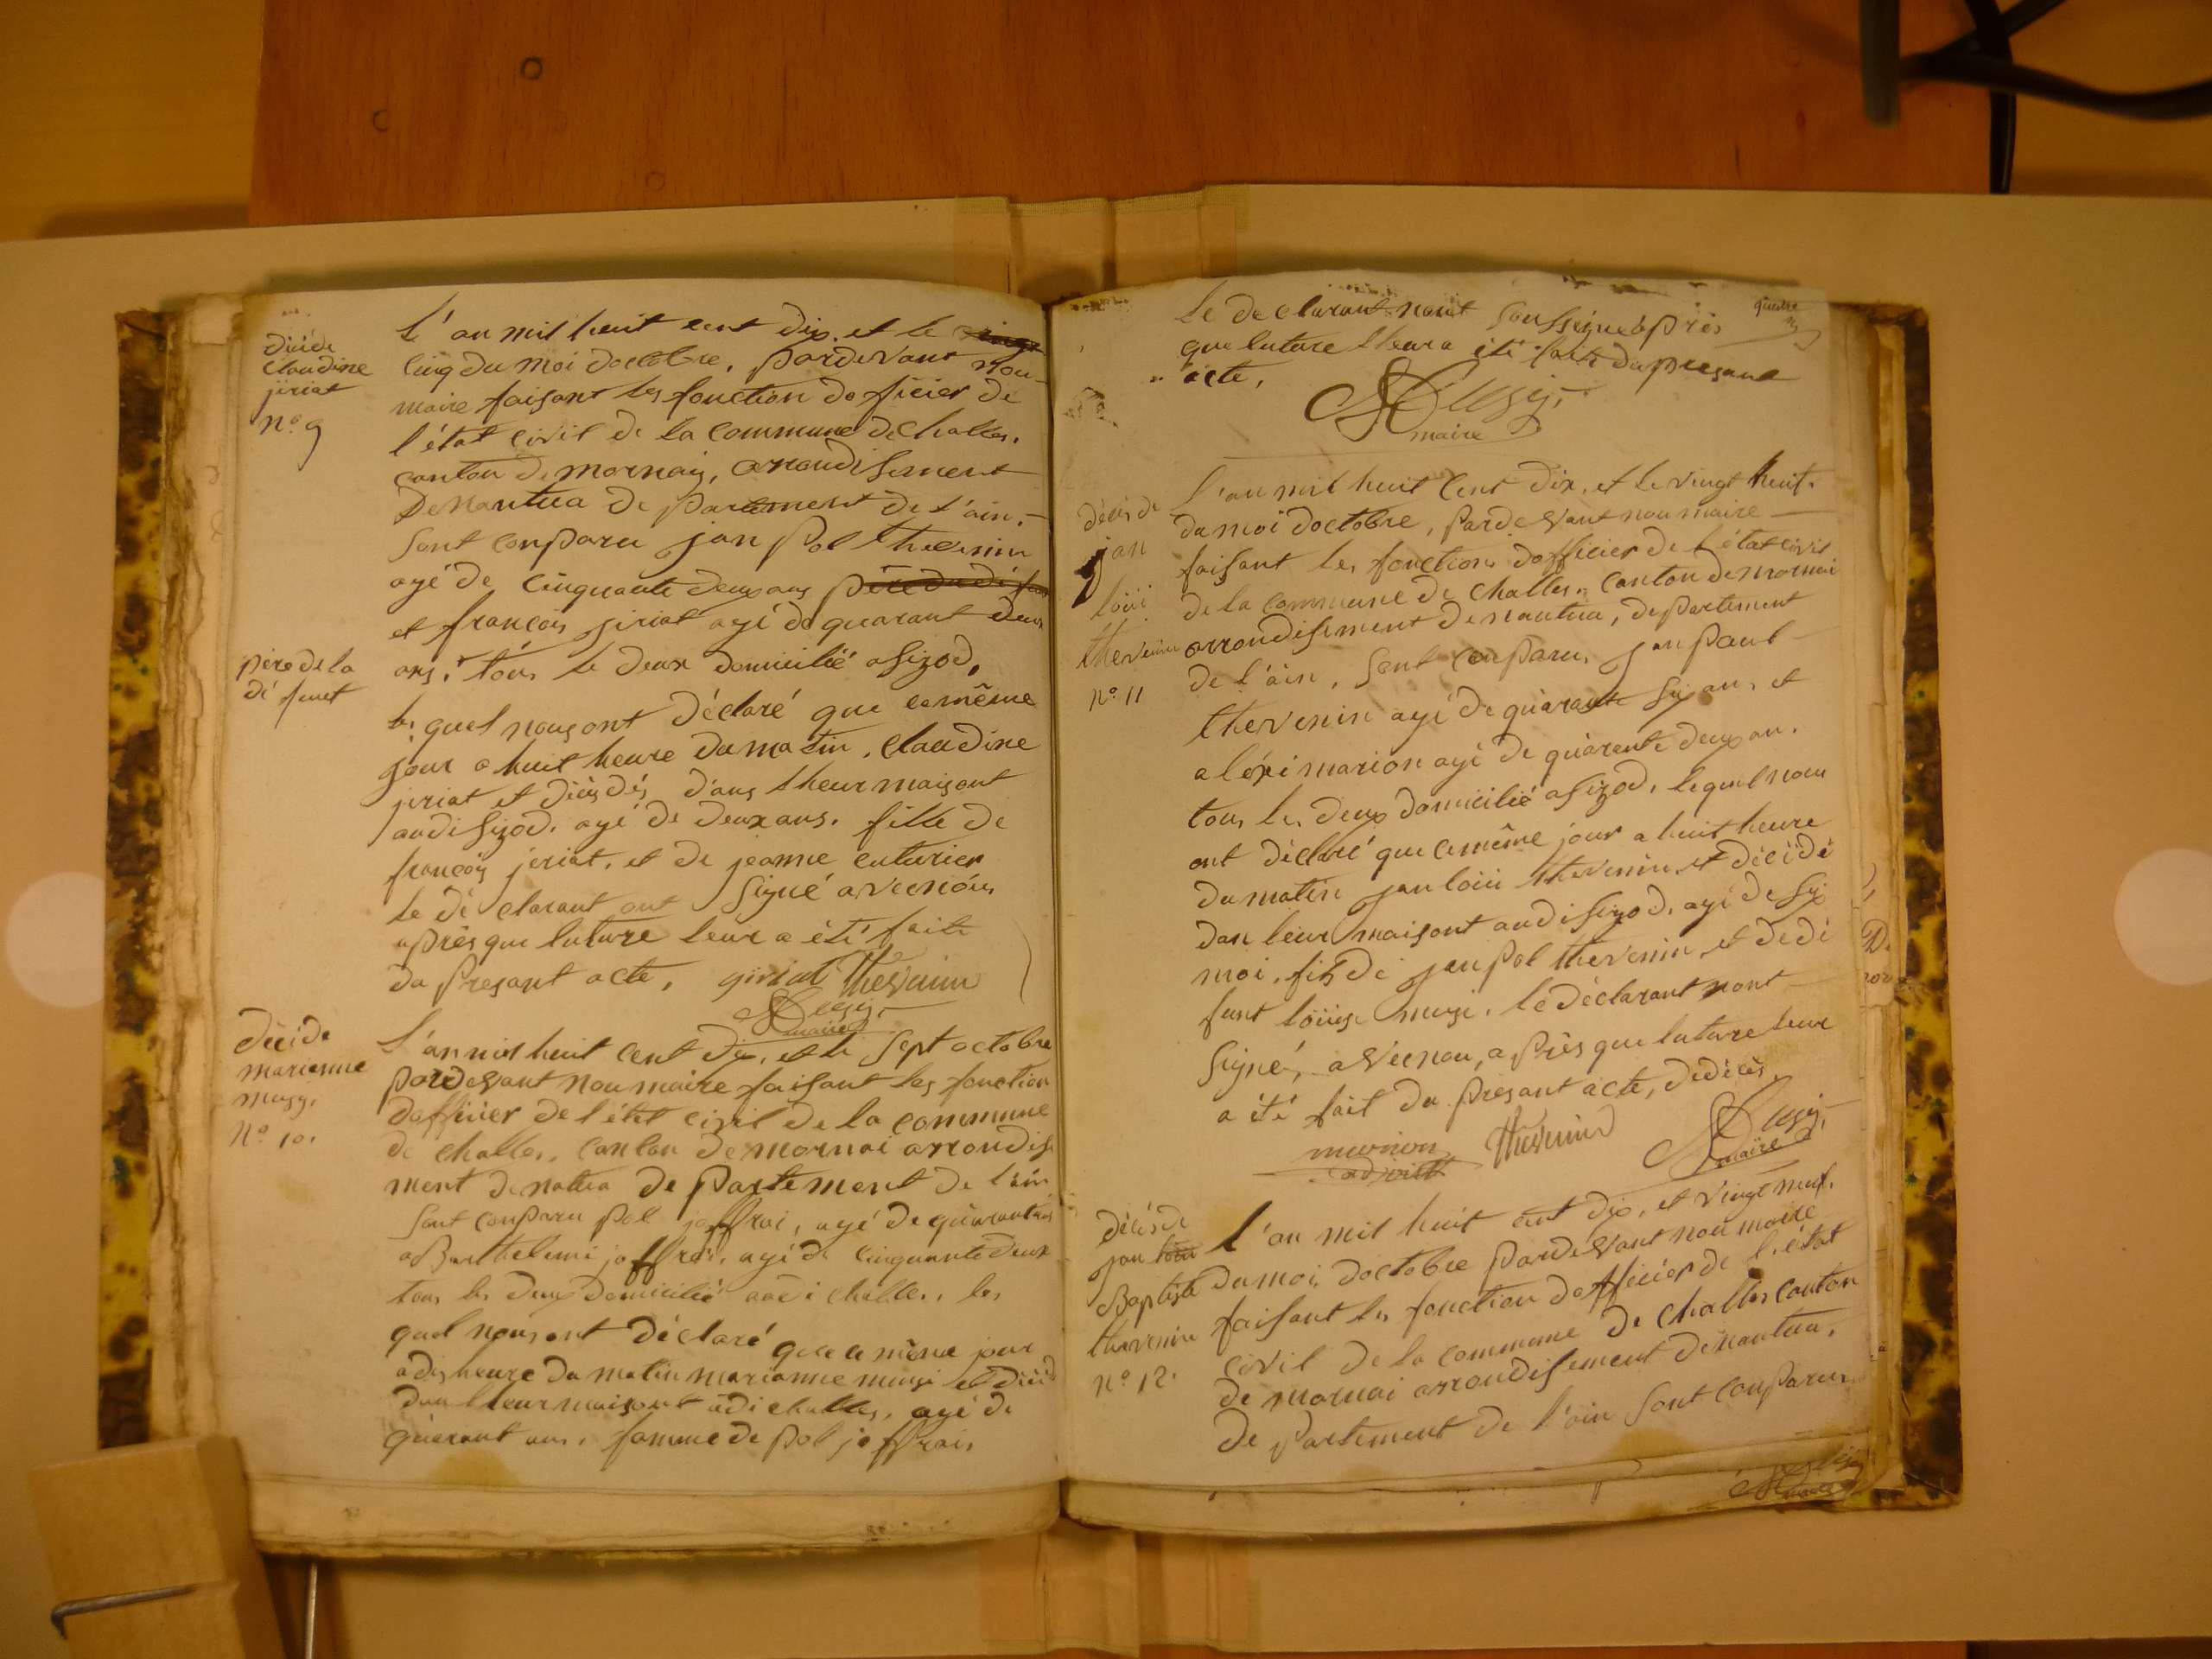 décide
claudine
jeriat
n.o 9
l'an mil huit cent dix. et le vingt
cinq du moi doctobre. pardevant nou
maire faisant les fonction doficier de
l'état civil de la commune de challes.
canton de mornay, arrondisement
de nantua departement de l'ain.
sont conparu jan pol thevenin
agé de cinquante deux ans père du dé funt
et françois jiriat agé de quarant deux
ans. tous le deux domicilié a sizod.
père de la
dé funt
les quel nous ont déclaré que le même
jour a huit heure du matin. claudine
jeriat et décédés dans lheur maisont
audi sizod. agé de deux ans. fille de
françois jeriat. et de jeanne cuturier
le dé clarant ont signé avec nous
après que luture leur a été faite
du presant acte. giriat thevenin
maire
décide
marianne
musy.
N.o 10.
l'an mil huit cent dix, et le sept octobre
pardevant nou maire faisant les fonction
dofficier de l'état civil de la commune
de challes. canton de mornai arrondis
ment de natua departement de l'ain
sont conparu pol joffrai, agé de quarant ans
Barthelemi joffrai. agé de cinquante deux
tous les deux domicilié audi challes. les
quel nous ont déclaré que le même jour
a dix heure du matin marianne musi et décéd
dan lheur maisont adi challes, agé de
quarant ans. famme de pol joffrai
le declarant nont sousigné après
que luture lheur a été faite du presant
acte,
maire
décès de
jan
loüi
thevenin
N.o 11
l'an mil huit cent dix, et le vingt huit.
du moi doctobre, pardevant nou maire
faisant les fonction dofficier de l'état civil
de la commune de challes. canton de mornai
arrondisement de nantua, departement
de l'ain, sont conparu, jan paul
thevenin agé de quarante six an, et
aléxi marion agé de quarante deux an.
tous les deux domicilié a sizod, lequel nou
ont déclaré que le même jour a huit heure
du matin jan loüi thevenin et décédé
dan leur maisont audi sizod, agé de six
moi. fils de jan pol thevenin et de dé
funt loüise musi. le déclarant nont
signé, avec nou, après que luture leur
a été fait du presant acte, de décès
marion thevenin
adjoint
maire
décès de
jan loüi
Baptiste
thevenin
N.o 12.
l'an mil huit cent dix, et vingt neuf.
du moi doctobre pardevant nou maire
faisant les fonction dofficier de l'état
civil de la commune de challes canton
de mornai arrondisement de nantua.
departement de l'ain sont conparu